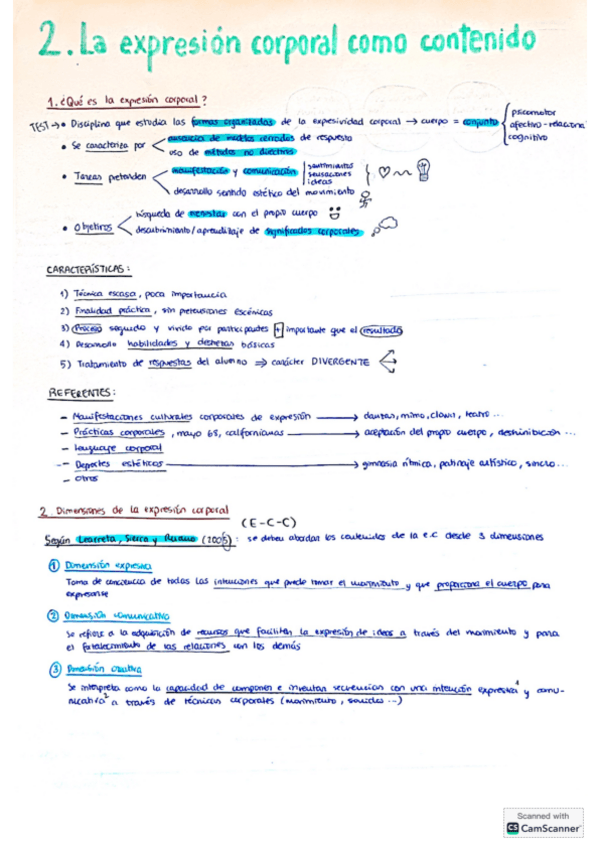 2. La expresión corporal como contenido
1. ¿Qué es la expresión corporal?
TEST → • Disciplina que estudia las formas organizadas de la expresividad corporal → cuerpo = conjunto
psicomotor
afectivo-relacional
cognitivo
• Se caracteriza por
ausencia de modelos cerrados de respuesta
uso de métodos no directivos
• Tareas pretenden
manifestación y comunicación
sentimientos
sensaciones
ideas
desarrollo sentido estético del movimiento
• Objetivos
búsqueda de bienestar con el propio cuerpo
descubrimiento/aprendizaje de significados corporales
CARACTERÍSTICAS:
1) Técnica escasa, poca importancia
2) Finalidad práctica, sin pretensiones escénicas
3) Proceso seguido y vivido por participantes + importante que el resultado
4) Desarrollo habilidades y destrezas básicas
5) Tratamiento de respuestas del alumno ⇒ carácter DIVERGENTE
REFERENTES:
– Manifestaciones culturales corporales de expresión → danzas, mimo, clown, teatro...
– Prácticas corporales, mayo 68, californianas → aceptación del propio cuerpo, deshinibición...
– Lenguaje corporal
– Deportes estéticos → gimnasia rítmica, patinaje artístico, sincro...
– Otros
2. Dimensiones de la expresión corporal
(E-C-C)
Según Learreta, Sierra y Ruano (2005): se deben abordar los contenidos de la e.c desde 3 dimensiones
① Dimensión expresiva
Toma de conciencia de todas las intenciones que puede tomar el movimiento y que proporciona el cuerpo para
expresarse
② Dimensión comunicativa
Se refiere a la adquisición de recursos que facilitan la expresión de ideas a través del movimiento y para
el fortalecimiento de las relaciones con los demás
③ Dimensión creativa
Se interpreta como la capacidad de componer e inventar secuencias con una intención expresiva¹ y comu-
nicativa² a través de técnicas corporales (movimiento, sonidos...)
Scanned with
CS CamScanner